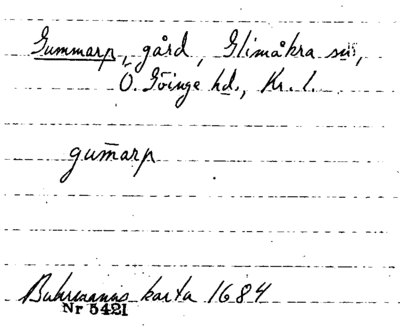 Gummarp, gård, Glimåkra sn,
Ö. Göinge hd., Kr. l.
gum̄arp
Buhrmanns karta 1684
Nr 5421